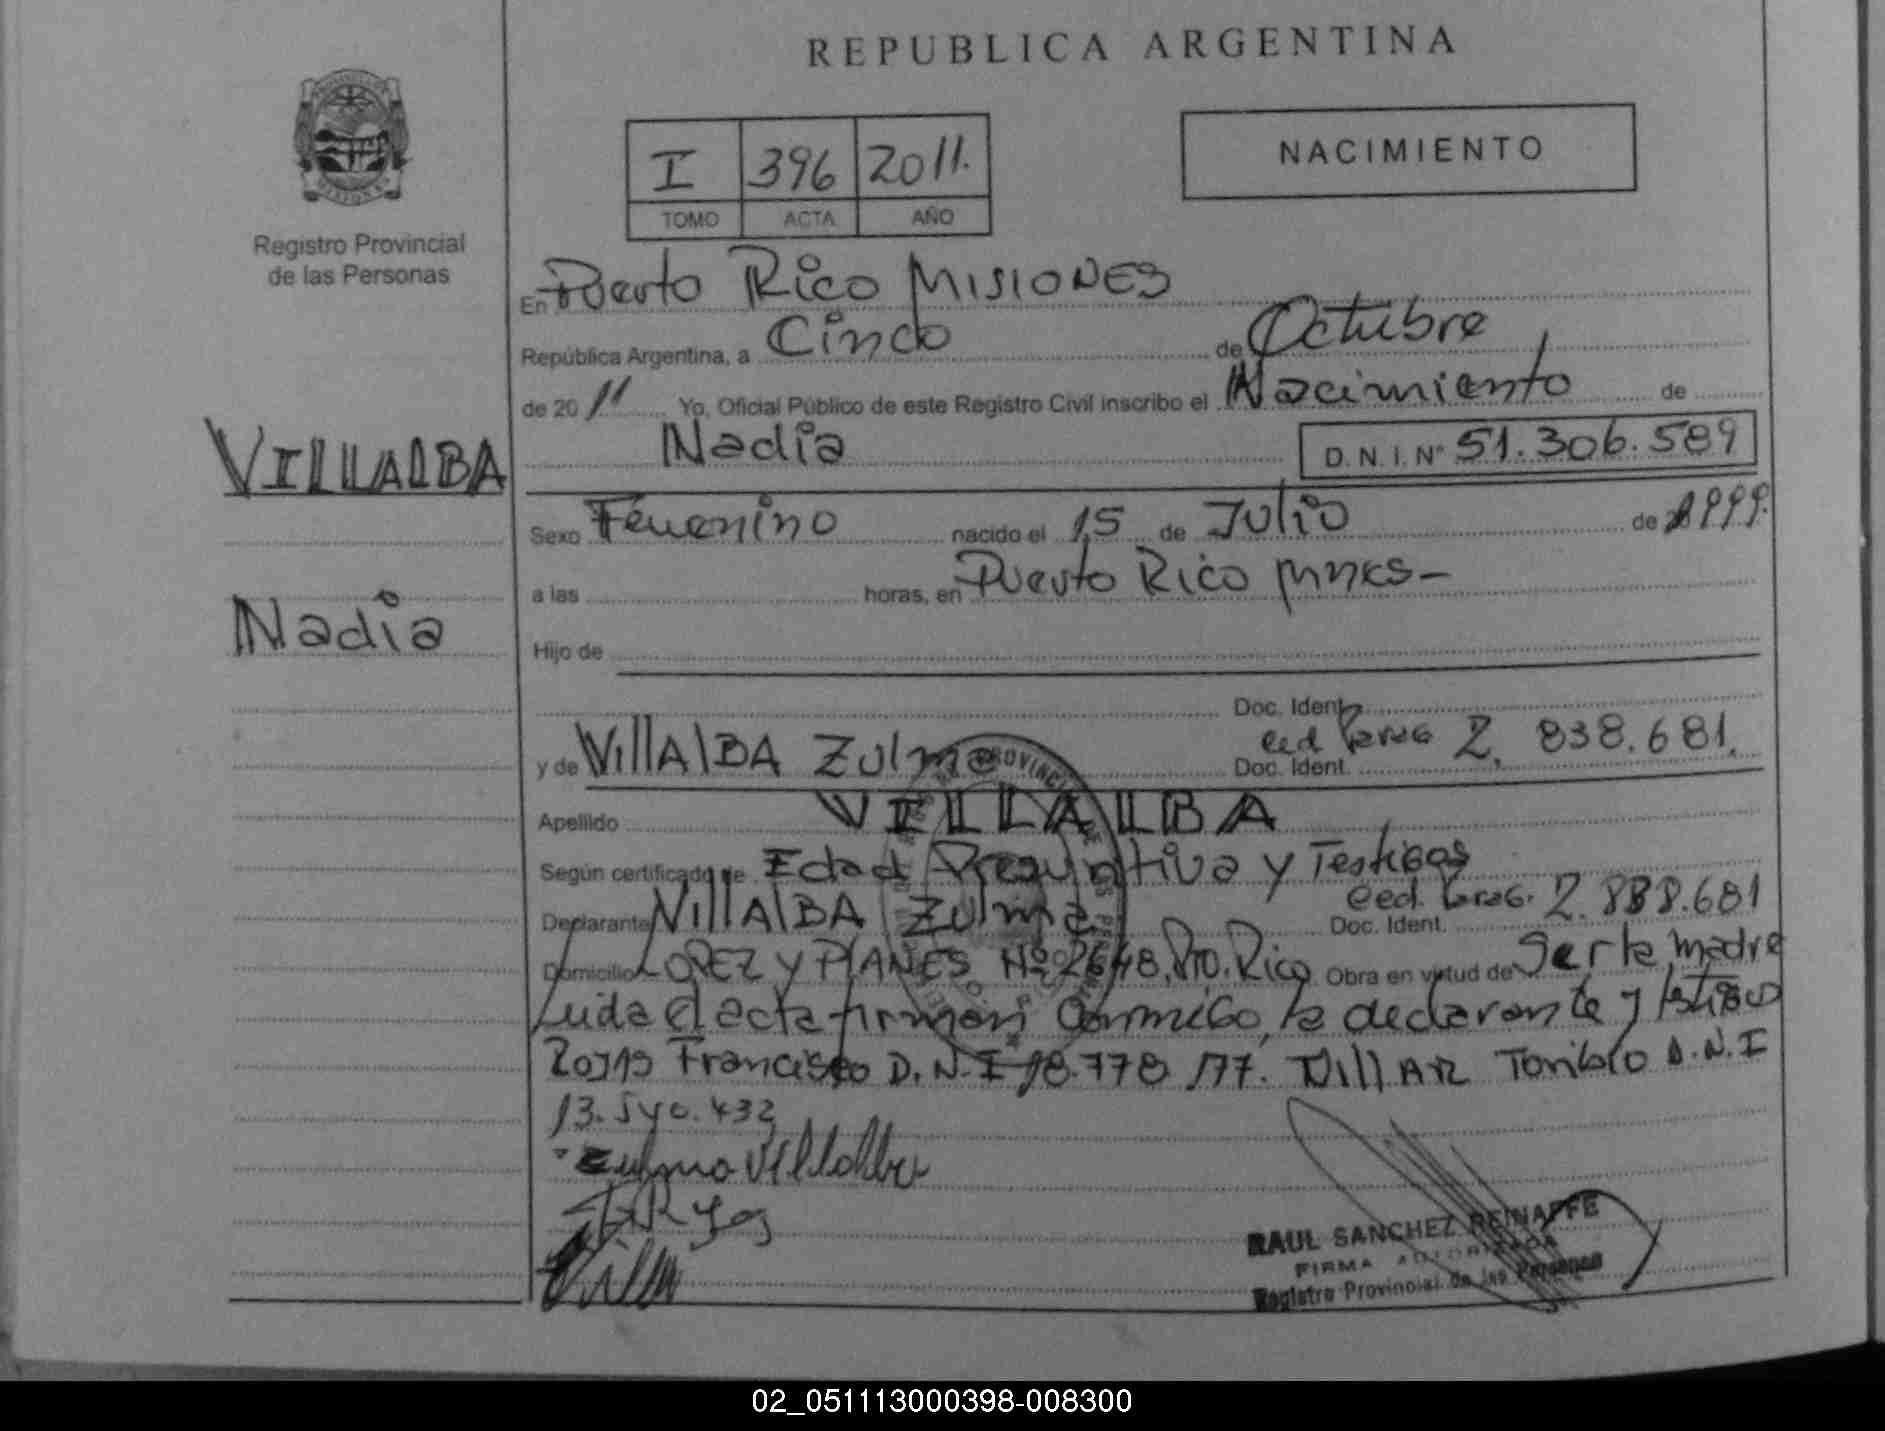 REPUBLICA ARGENTINA
I 396 2011.
TOMO ACTA AÑO
NACIMIENTO
Registro Provincial
de las Personas
VILLALBA
Nadia
En Puerto Rico MISIONES
República Argentina, a Cinco de Octubre
de 2011 Yo, Oficial Público de este Registro Civil inscribo el Nacimiento de
Nadia D.N.I. Nº 51.306.589
Sexo Femenino nacido el 15 de Julio de 1999.
a las horas, en Puerto Rico Mnes-
Hijo de
Doc. Ident.
y de VillAlBA Zulma Doc. Ident. Ced Parag 2.838.681.
Apellido VILLALBA
Según certificado de Edad Presuntiva y Testigos
Declarante VillAlBA Zulma Doc. Ident. Ced. Parag. 2.838.681
Domicilio LOPEZ Y PLANES Nº 2648, Pto. Rico Obra en virtud de Ser la madre
Leida el acta firman Conmigo, la declarante y testigos
Rojas Francisco D.N.I 18.778.177. VillAR Toribio D.N.I
13.540.432
Zulma Villalba
RAUL SANCHEZ REINAFFE
FIRMA AUTORIZADA
Registro Provincial de las Personas
02_051113000398-008300